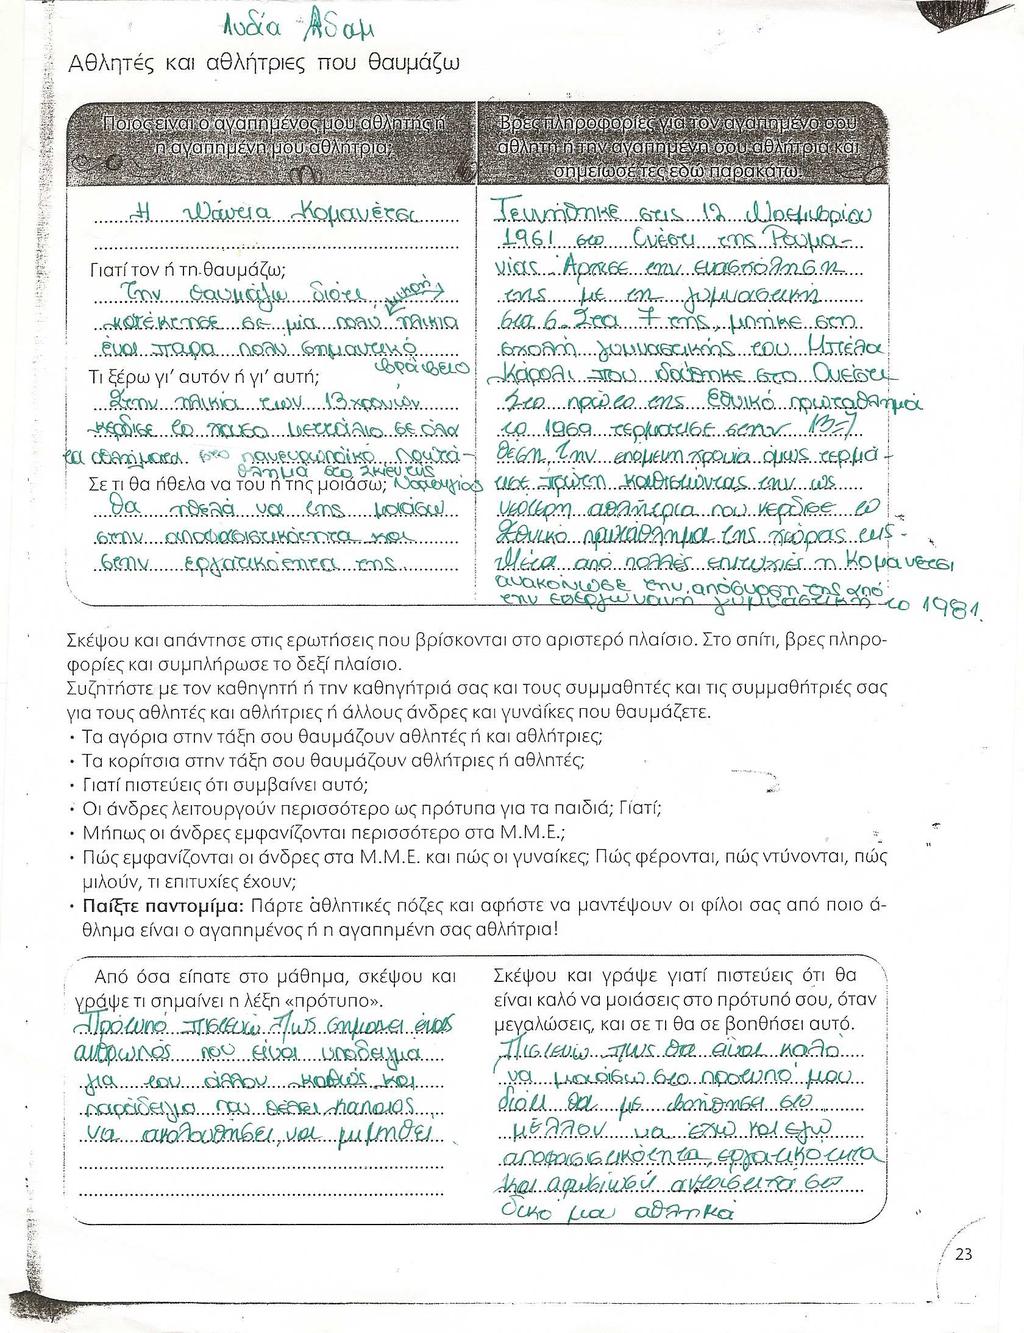 Λυδία Αδαμ
Αθλητές και αθλήτριες που θαυμάζω
Ποιος είναι ο αγαπημένος μου αθλητής ή
η αγαπημένη μου αθλήτρια;
Η Νάντια Κομανέτσι
Γιατί τον ή τη θαυμάζω;
Την θαυμάζω διότι
κατέκτησε σε μία πολύ μικρή ηλικία
ένα πάρα πολύ σημαντικό
βραβείο
Τι ξέρω γι' αυτόν ή γι' αυτή;
Στην ηλικία των 13 χρονών
κέρδισε το χρυσό μετάλλιο σε όλα
τα αθλήματα στο πανευρωπαϊκό Πρωτά-
θλημα στο Σκιεν της
Νορβηγίας
Σε τι θα ήθελα να του ή της μοιάσω;
Θα ήθελα να της μοιάσω
στην αποφασιστικότητα και
στην εργατικότητα της
Βρες πληροφορίες για τον αγαπημένο σου
αθλητή ή την αγαπημένη σου αθλήτρια και
σημείωσέ τες εδώ παρακάτω.
Γεννήθηκε στις 12 Νοεμβρίου
1961 στο Ονέστι της Ρουμα-
νίας. Άρχισε την ενασχόληση
της με τη γυμναστική
στα 6. Στα 7 της, μπήκε στη
σχολή γυμναστικής του Μπέλα
Κάρολι που ιδρύθηκε στο Ονέστι
Στο πρώτο της Εθνικό πρωτάθλημα
το 1969 τερμάτισε στην 13η
θέση, την επόμενη χρονιά όμως τερμά-
τισε πρώτη καθιστώντας την ως
νεότερη αθλήτρια που κέρδισε το
Εθνικό πρωτάθλημα της χώρας της-
Μετά από πολλές επιτυχίες η Κομανέτσι
ανακοίνωσε την απόσυρση της από
την ενεργό γυμναστική το 1981.
Σκέψου και απάντησε στις ερωτήσεις που βρίσκονται στο αριστερό πλαίσιο. Στο σπίτι, βρες πληρο-
φορίες και συμπλήρωσε το δεξί πλαίσιο.
Συζητήστε με τον καθηγητή ή την καθηγήτριά σας και τους συμμαθητές και τις συμμαθήτριές σας
για τους αθλητές και αθλήτριες ή άλλους άνδρες και γυναίκες που θαυμάζετε.
• Τα αγόρια στην τάξη σου θαυμάζουν αθλητές ή και αθλήτριες;
• Τα κορίτσια στην τάξη σου θαυμάζουν αθλήτριες ή αθλητές;
• Γιατί πιστεύεις ότι συμβαίνει αυτό;
• Οι άνδρες λειτουργούν περισσότερο ως πρότυπα για τα παιδιά; Γιατί;
• Μήπως οι άνδρες εμφανίζονται περισσότερο στα Μ.Μ.Ε.;
• Πώς εμφανίζονται οι άνδρες στα Μ.Μ.Ε. και πώς οι γυναίκες; Πώς φέρονται, πώς ντύνονται, πώς
μιλούν, τι επιτυχίες έχουν;
• Παίξτε παντομίμα: Πάρτε αθλητικές πόζες και αφήστε να μαντέψουν οι φίλοι σας από ποιο ά-
θλημα είναι ο αγαπημένος ή η αγαπημένη σας αθλήτρια!
Από όσα είπατε στο μάθημα, σκέψου και
γράψε τι σημαίνει η λέξη «πρότυπο».
Πρότυπο πιστεύω πως σημαίνει ένας
άνθρωπος που είναι υπόδειγμα
για τον άλλον καθώς και
παράδειγμα που θέλει κάποιος
να ακολουθήσει, να μιμηθεί.
Σκέψου και γράψε γιατί πιστεύεις ότι θα
είναι καλό να μοιάσεις στο πρότυπό σου, όταν
μεγαλώσεις, και σε τι θα σε βοηθήσει αυτό.
Πιστεύω πως θα είναι καλό
να μοιάσω στο πρότυπό μου
διότι θα με βοηθήσει στο
μέλλον να έχω και εγώ
αποφασιστικότητα, εργατικότητα
και αφοσίωση αντίστοιχα στο
δικό μου άθλημα
23